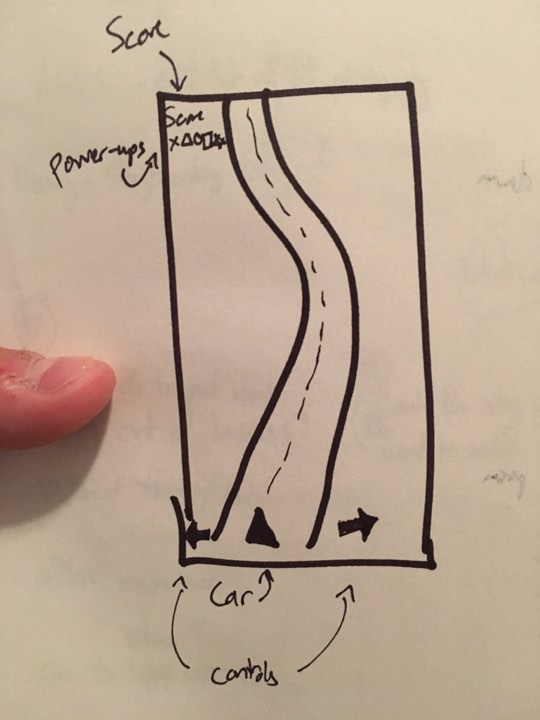 Score
Score
Power-ups
Car
Controls